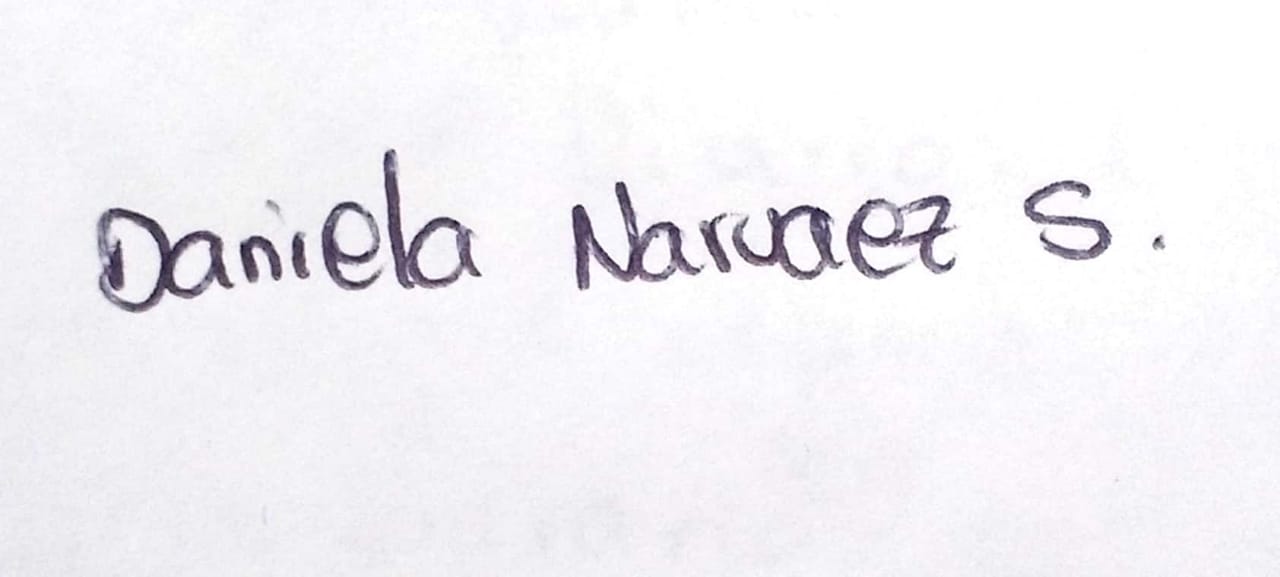 Daniela Narvaez S.